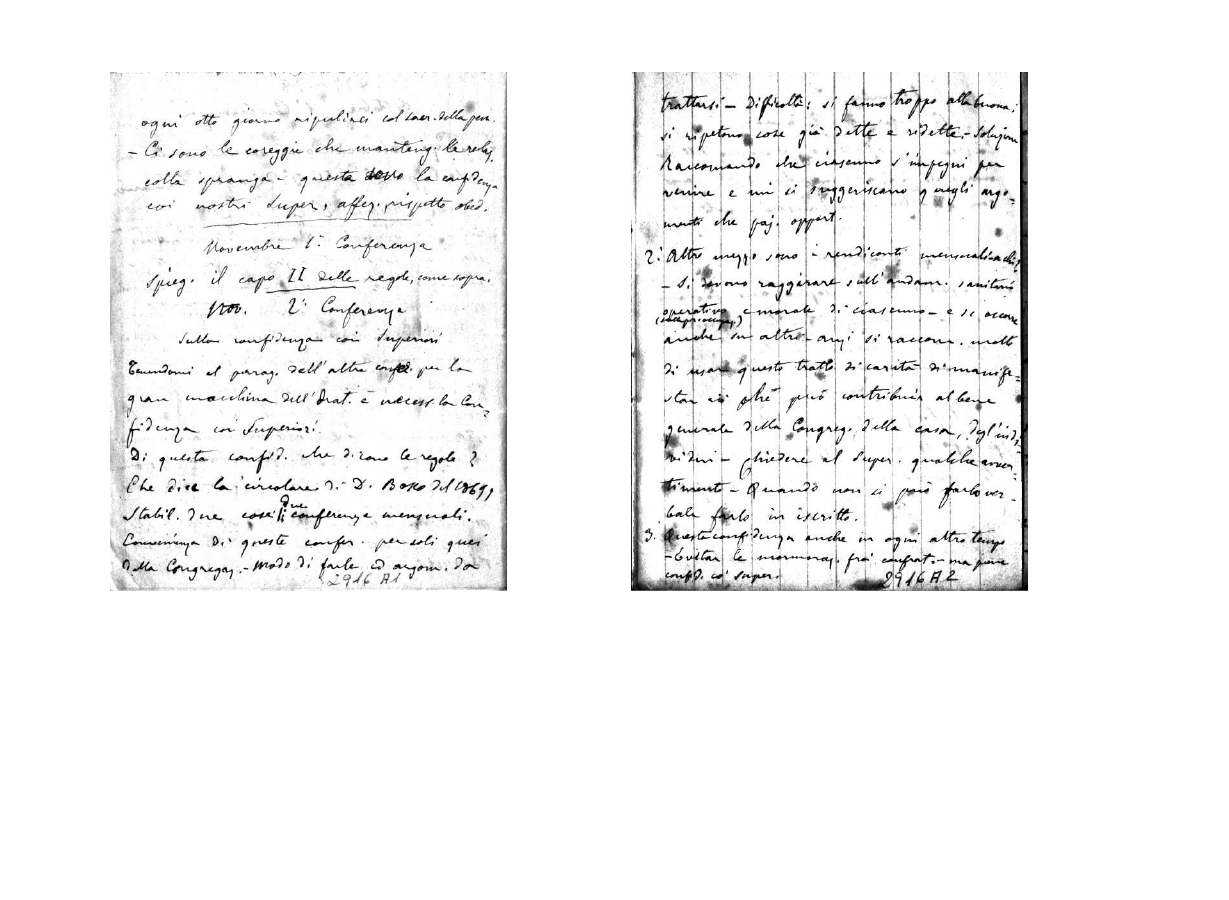 ogni otto giorno ripulirci col sacr. della pen.
– Ci sono le coreggie che manteng. le relaz.
colla spranga – questa sono la confidenza
coi nostri Super, affez. rispetto obed.
Novembre 1ª Conferenza
Spieg. il capo II delle regole, come sopra.
Nov. 2ª Conferenza
Sulla confidenza coi Superiori
Tenendomi al parag. dell'altra conf. per la
gran macchina dell'Orat. è necess. la Con-
fidenza coi Superiori.
Di questa confid. che dicono le regole?
Che dice la circolare di D. Bosco del 1869,
Stabil. due cose 1: due conferenze mensuali.
Convenienza di queste confer. per soli quei
della Congregaz. – Modo di farle ed argom. da
2916 A1
trattarsi – Difficoltà: si fanno troppo alla buona;
si ripetono cose già dette e ridette. – Soluzione
Raccomando che ciascuno s'impegni per
venire e mi si suggeriscano quegli argo-
menti che paj. opport.
2. Altro mezzo sono i rendiconti mensuali
– Si devono raggirare sull'andam. sanitario
operativo e morale di ciascuno – e se occorre
anche su altro – anzi si raccom. molto
di usare questo tratto di carità di manife-
star ciò che può contribuir al bene
generale della Congreg., della casa, degl'indi-
vidui – Chiedere al Super. qualche avver-
timento – Quando non si può farlo ver-
bale farlo in iscritto.
3. Questa confidenza anche in ogni altro tempo
– Evitar le mormoraz. fra confrat. – ma
confid. co' super.
2916 A2